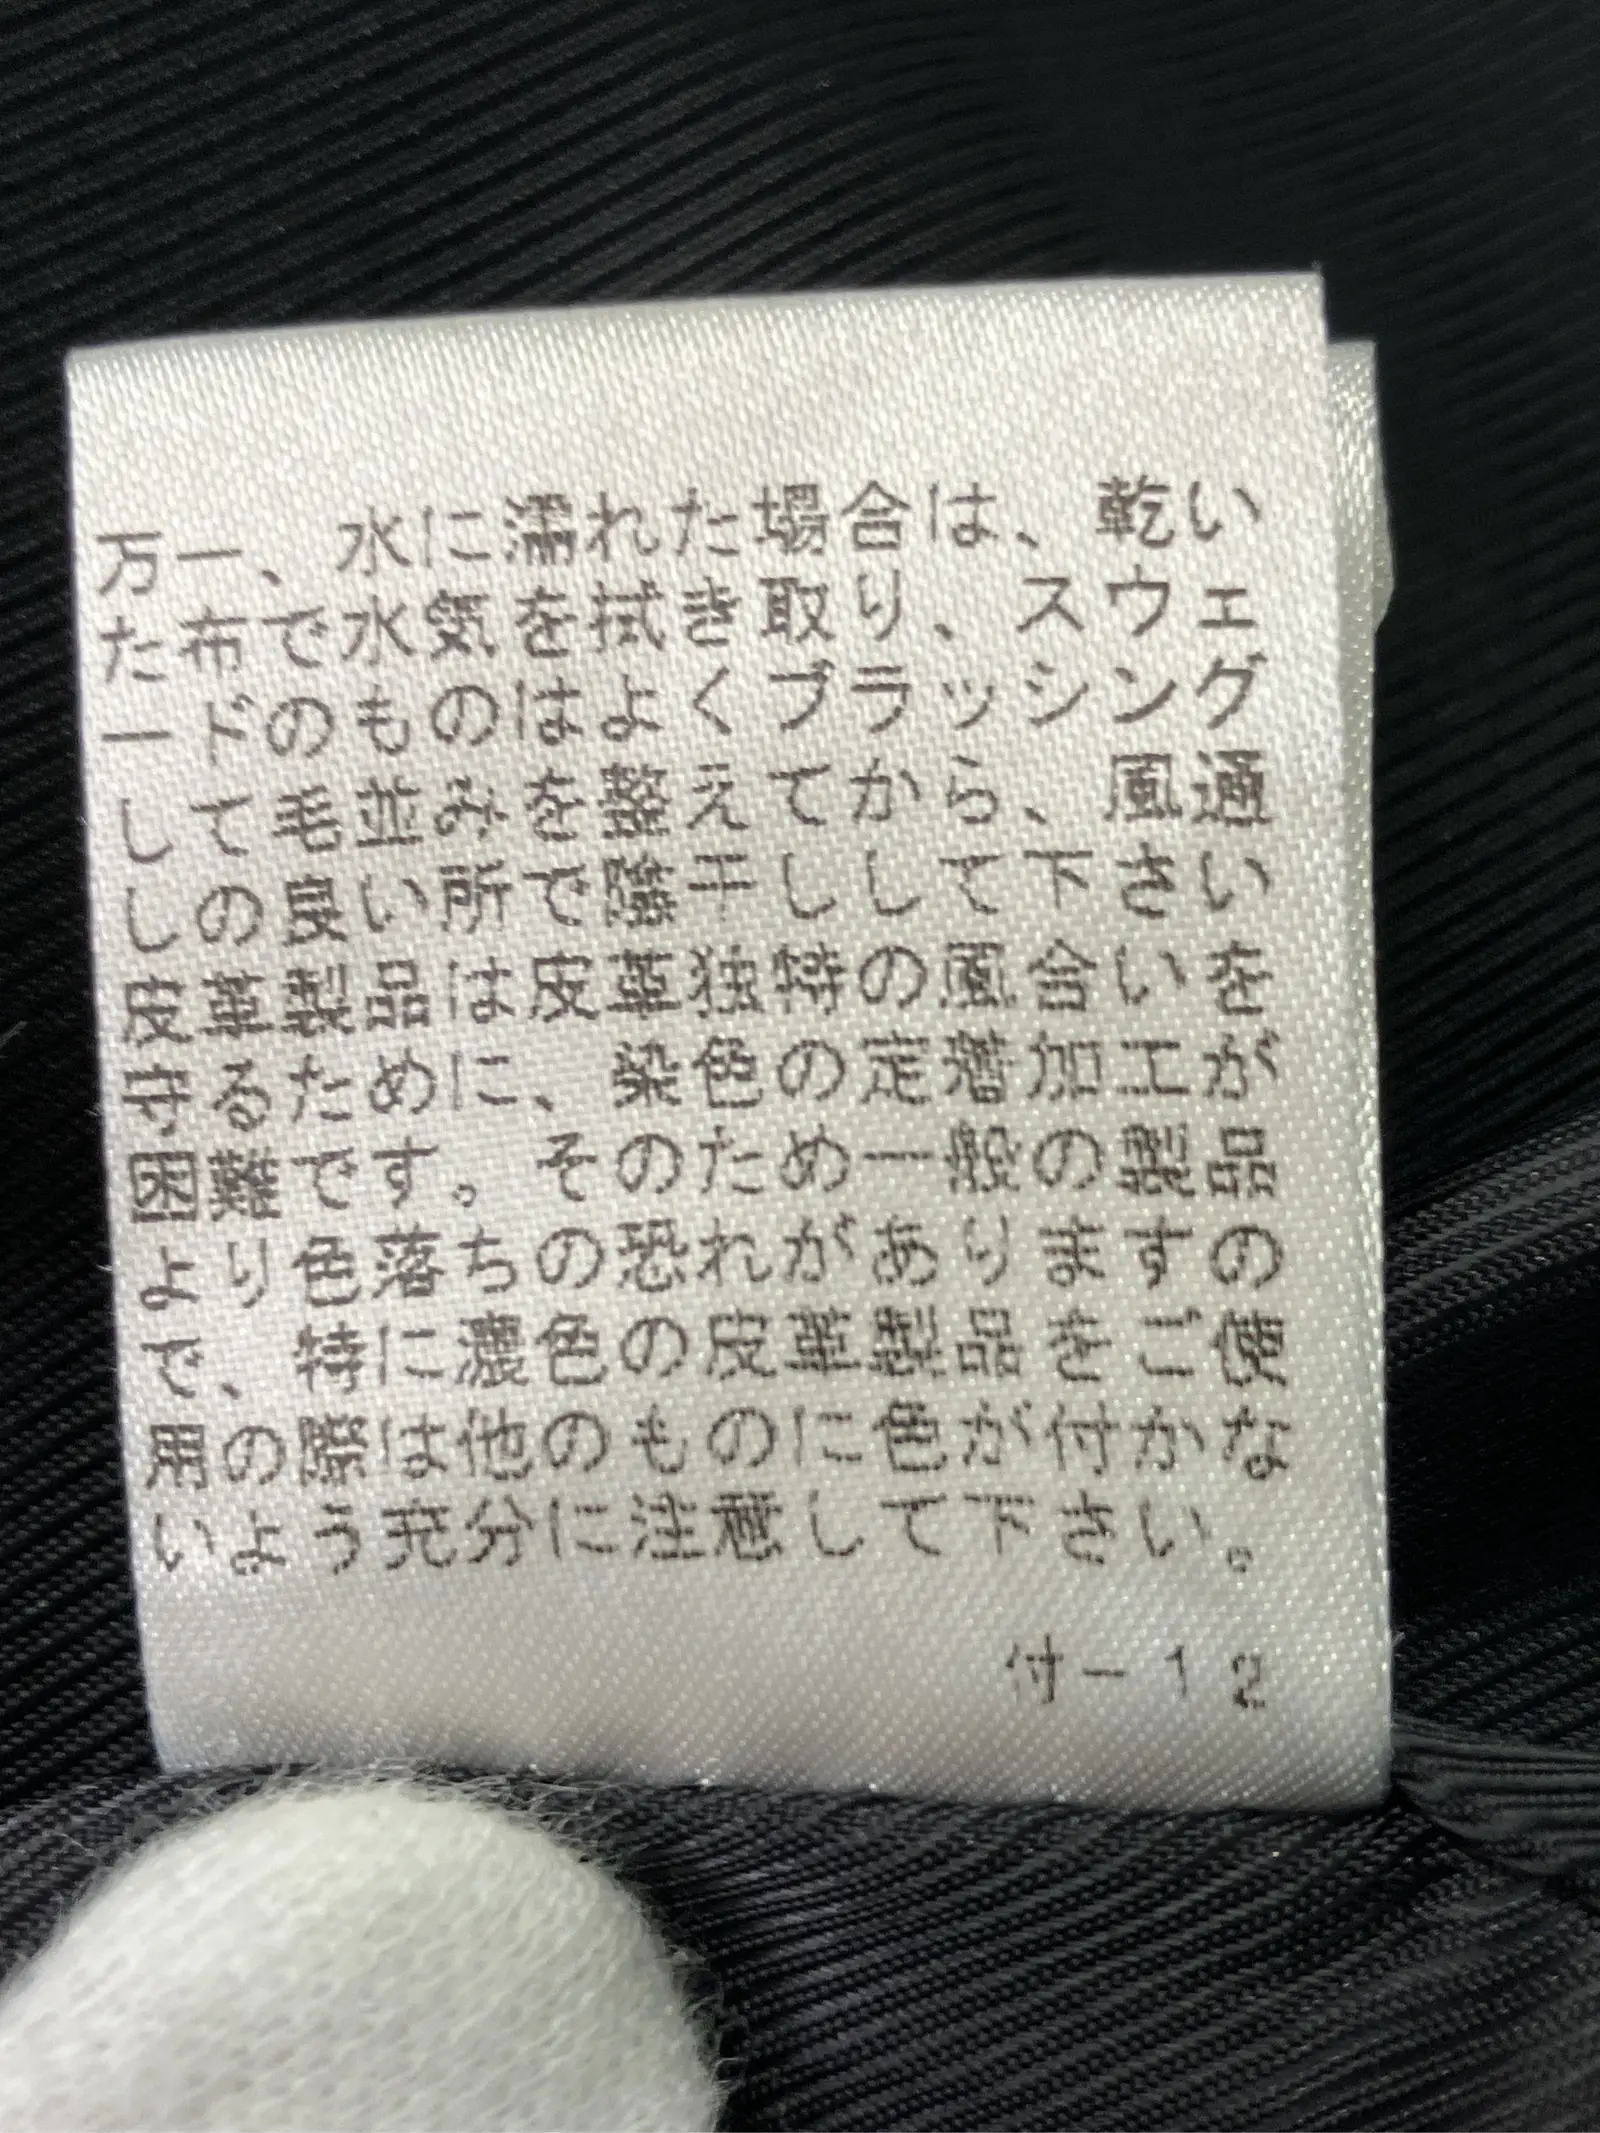 万一、水に濡れた場合は、乾い
た布で水気を拭き取り、スウェ
ードのものはよくブラッシング
して毛並みを整えてから、風通
しの良い所で陰干しして下さい
皮革製品は皮革独特の風合いを
守るために、染色の定着加工が
困難です。そのため一般の製品
より色落ちの恐れがありますの
で、特に濃色の皮革製品をご使
用の際は他のものに色が付かな
いよう充分に注意して下さい。
付－１２